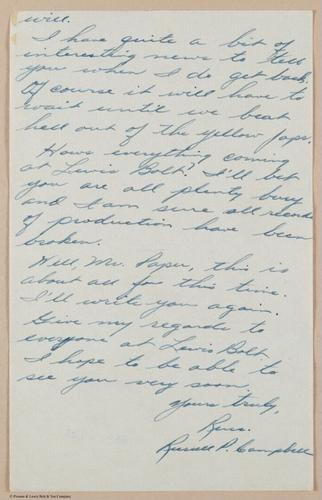 will.
I have quite a bit of
interesting news to tell
you when I do get back.
Of course it will have to
wait until we beat
hell out of the yellow Japs.
Hows everything coming
at Lewis Bolt? I'll bet
you are all plenty busy
and I am sure all records
of production have been
broken.
Well, Mr. Paper, this is
about all for this time.
I'll write you again.
Give my regards to
everyone at Lewis Bolt.
I hope to be able to
see you very soon.
Yours truly,
Russ.
Russell P. Campbell
© Possess & Lewis Bolt & Nut Company